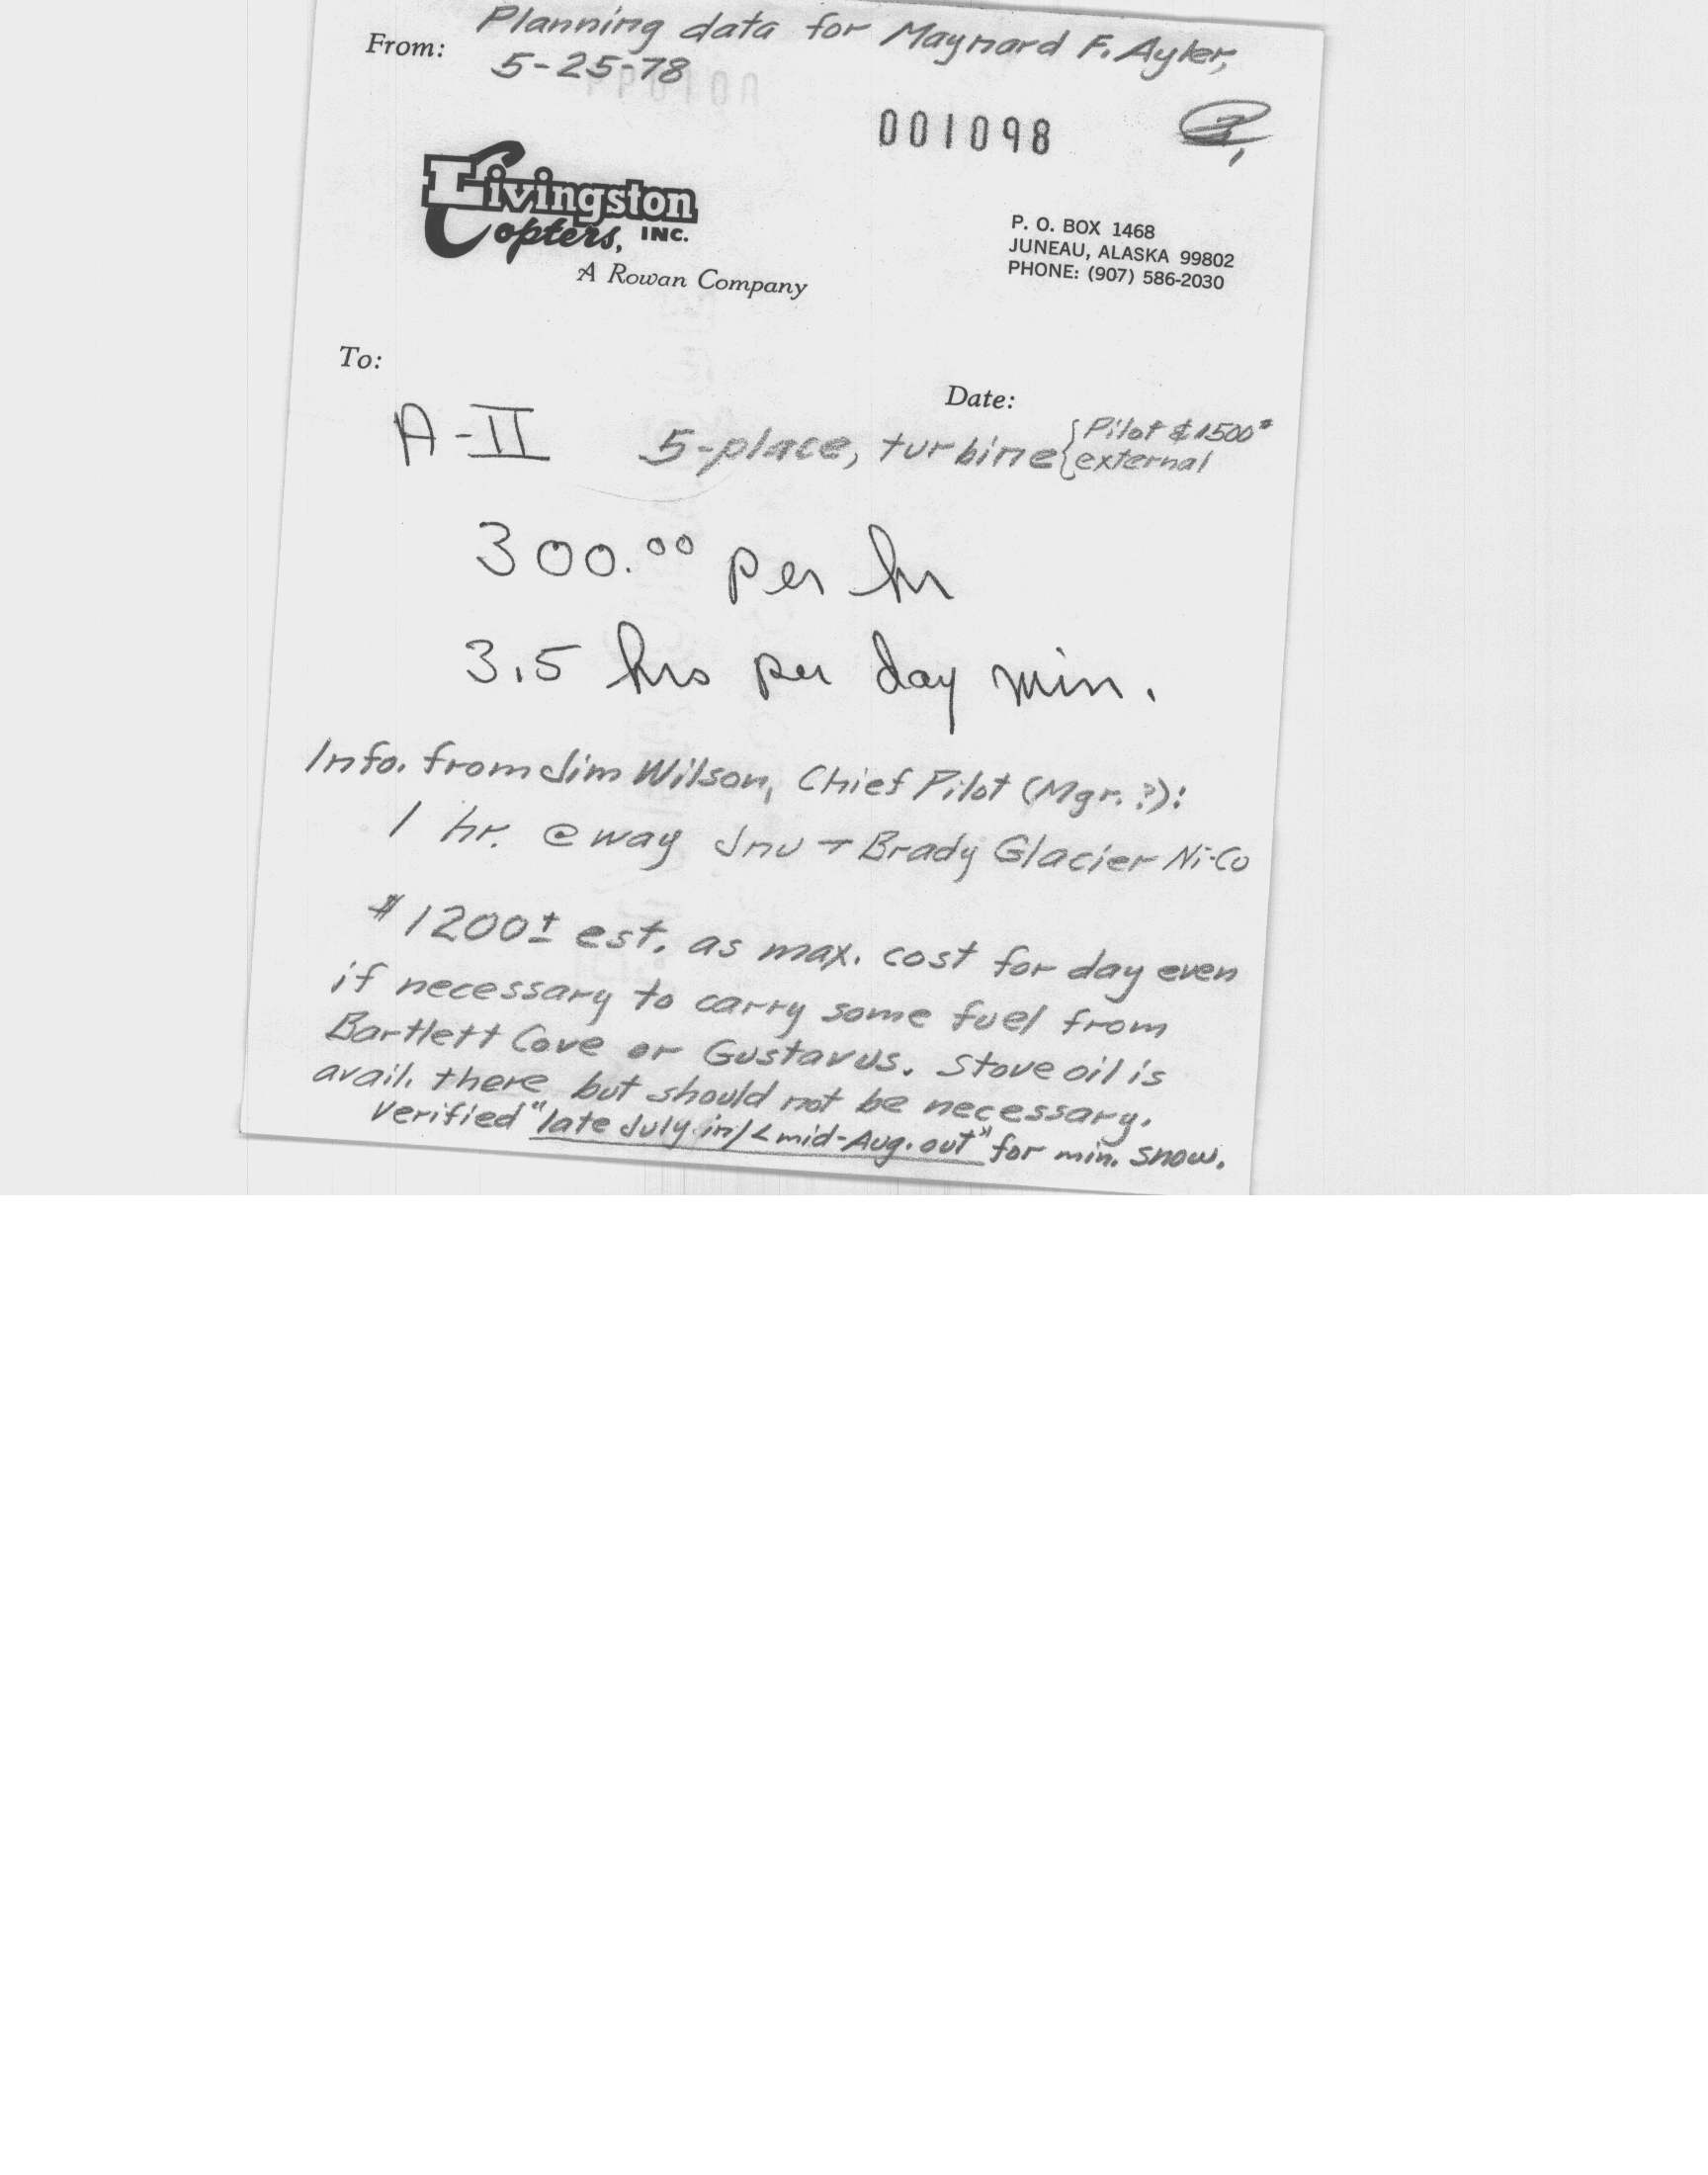 Planning data for Maynard F. Ayler,
From: 5-25-78
001098
Livingston
Copters, INC.
A Rowan Company
P. O. BOX 1468
JUNEAU, ALASKA 99802
PHONE: (907) 586-2030
To:
Date:
A-II 5-place, turbine { Pilot & 1500#
external
300.00 per hr
3.5 hrs per day min.
Info. from Jim Wilson, Chief Pilot (Mgr.?):
1 hr. @ way Jnu → Brady Glacier Ni-Co
$1200± est. as max. cost for day even
if necessary to carry some fuel from
Bartlett Cove or Gustavus. Stove oil is
avail. there but should not be necessary.
Verified "late July in/< mid-Aug. out" for min. snow.